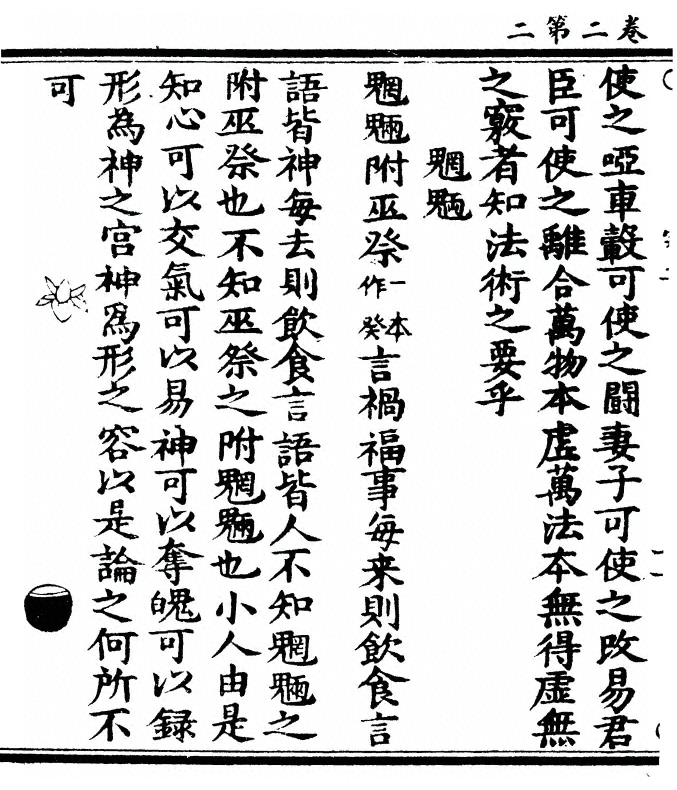 卷二第二
使之啞車轂可使之鬭妻子可使之改易君
臣可使之離合萬物本虛萬法本無得虛無
之竅者知法術之要乎
魍魎
魍魎附巫祭一本作癸言禍福事每来則飲食言
語皆神每去則飲食言語皆人不知魍魎之
附巫祭也不知巫祭之附魍魎也小人由是
知心可以交氣可以易神可以奪魄可以録
形為神之宮神爲形之容以是論之何所不
可